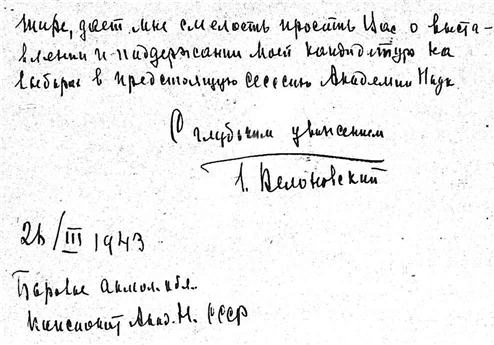 мире, дает мне смелость просить Вас о выста-
влении и поддержании моей кандидатуры на
выборах в предстоящую сессию Академии Наук
С глубоким уважением
Белоновский
/III 1943
Боровое Акмол. обл.
Акад. Н. СССР